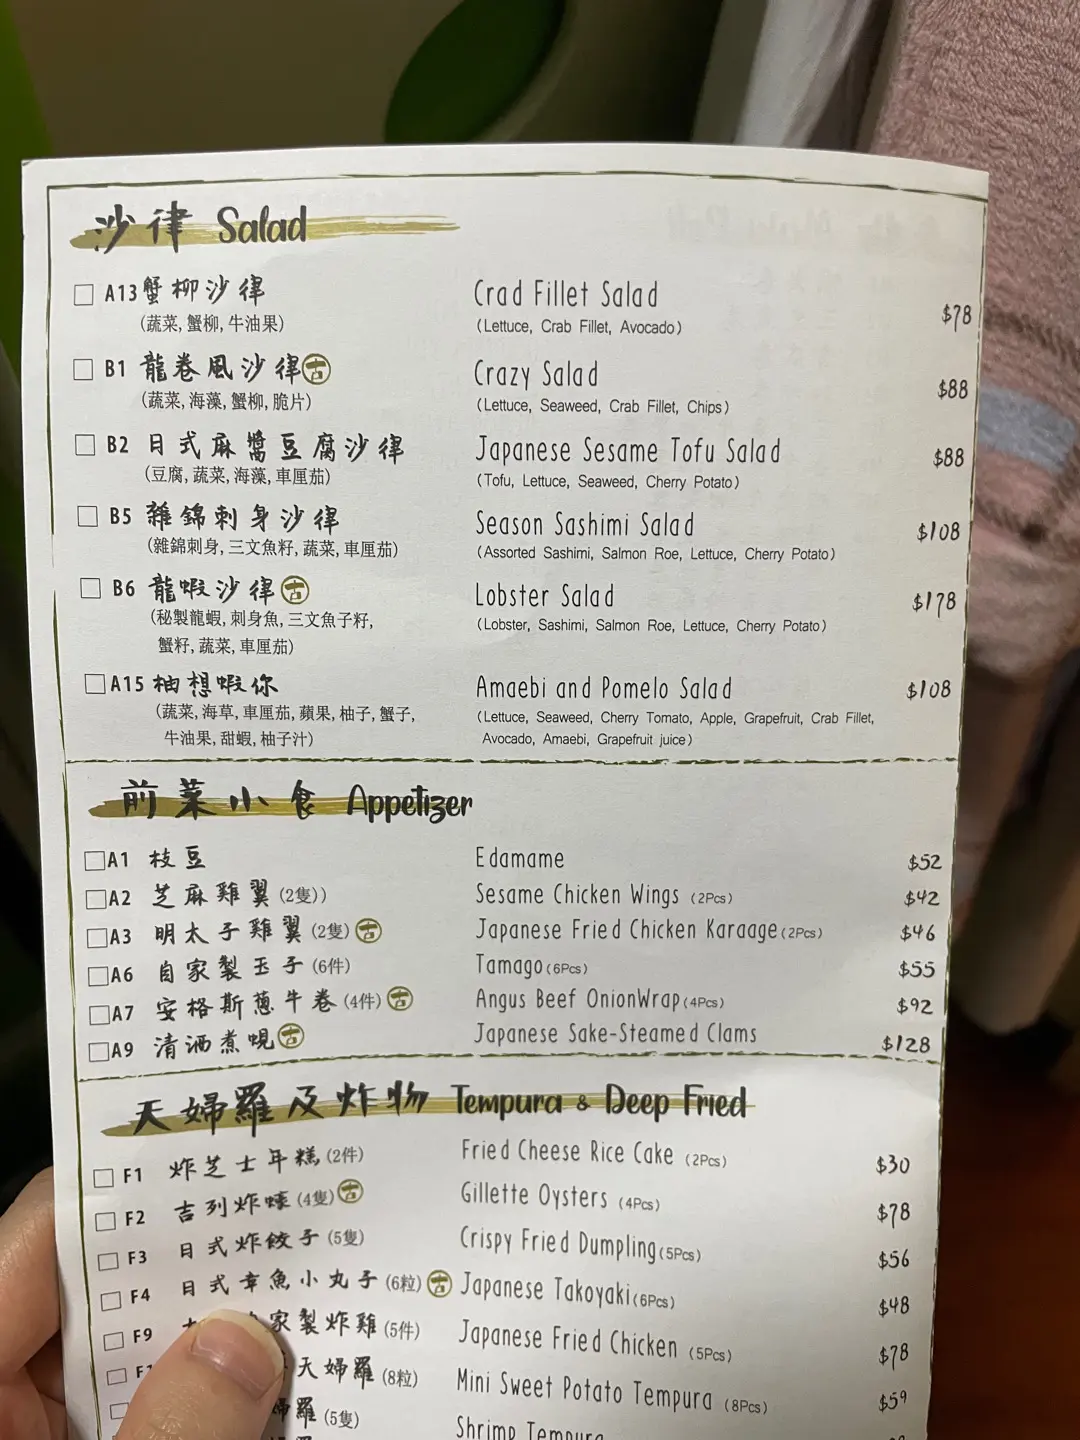 沙律 Salad
A13 蟹柳沙律 Crad Fillet Salad $78
(蔬菜, 蟹柳, 牛油果) (Lettuce, Crab Fillet, Avocado)
B1 龍卷風沙律 吉 Crazy Salad $88
(蔬菜, 海藻, 蟹柳, 脆片) (Lettuce, Seaweed, Crab Fillet, Chips)
B2 日式麻醬豆腐沙律 Japanese Sesame Tofu Salad $88
(豆腐, 蔬菜, 海藻, 車厘茄) (Tofu, Lettuce, Seaweed, Cherry Potato)
B5 雜錦刺身沙律 Season Sashimi Salad $108
(雜錦刺身, 三文魚籽, 蔬菜, 車厘茄) (Assorted Sashimi, Salmon Roe, Lettuce, Cherry Potato)
B6 龍蝦沙律 吉 Lobster Salad $178
(秘製龍蝦, 刺身魚, 三文魚子籽, (Lobster, Sashimi, Salmon Roe, Lettuce, Cherry Potato)
蟹籽, 蔬菜, 車厘茄)
A15 柚想蝦你 Amaebi and Pomelo Salad $108
(蔬菜, 海草, 車厘茄, 蘋果, 柚子, 蟹子, (Lettuce, Seaweed, Cherry Tomato, Apple, Grapefruit, Crab Fillet,
牛油果, 甜蝦, 柚子汁) Avocado, Amaebi, Grapefruit juice)
前菜小食 Appetizer
A1 枝豆 Edamame $52
A2 芝麻雞翼 (2隻)) Sesame Chicken Wings (2Pcs) $42
A3 明太子雞翼 (2隻) 吉 Japanese Fried Chicken Karaage (2Pcs) $46
A6 自家製玉子 (6件) Tamago (6Pcs) $55
A7 安格斯蔥牛卷 (4件) 吉 Angus Beef OnionWrap (4Pcs) $92
A9 清酒煮蜆 吉 Japanese Sake-Steamed Clams $128
天婦羅及炸物 Tempura & Deep Fried
F1 炸芝士年糕 (2件) Fried Cheese Rice Cake (2Pcs) $30
F2 吉列炸蠔 (4隻) 吉 Gillette Oysters (4Pcs) $78
F3 日式炸餃子 (5隻) Crispy Fried Dumpling (5Pcs) $56
F4 日式章魚小丸子 (6粒) 吉 Japanese Takoyaki (6Pcs) $48
F9 家製炸雞 (5件) Japanese Fried Chicken (5Pcs) $78
天婦羅 (8粒) Mini Sweet Potato Tempura (8Pcs) $59
婦羅 (5隻) Shrimp Tempura